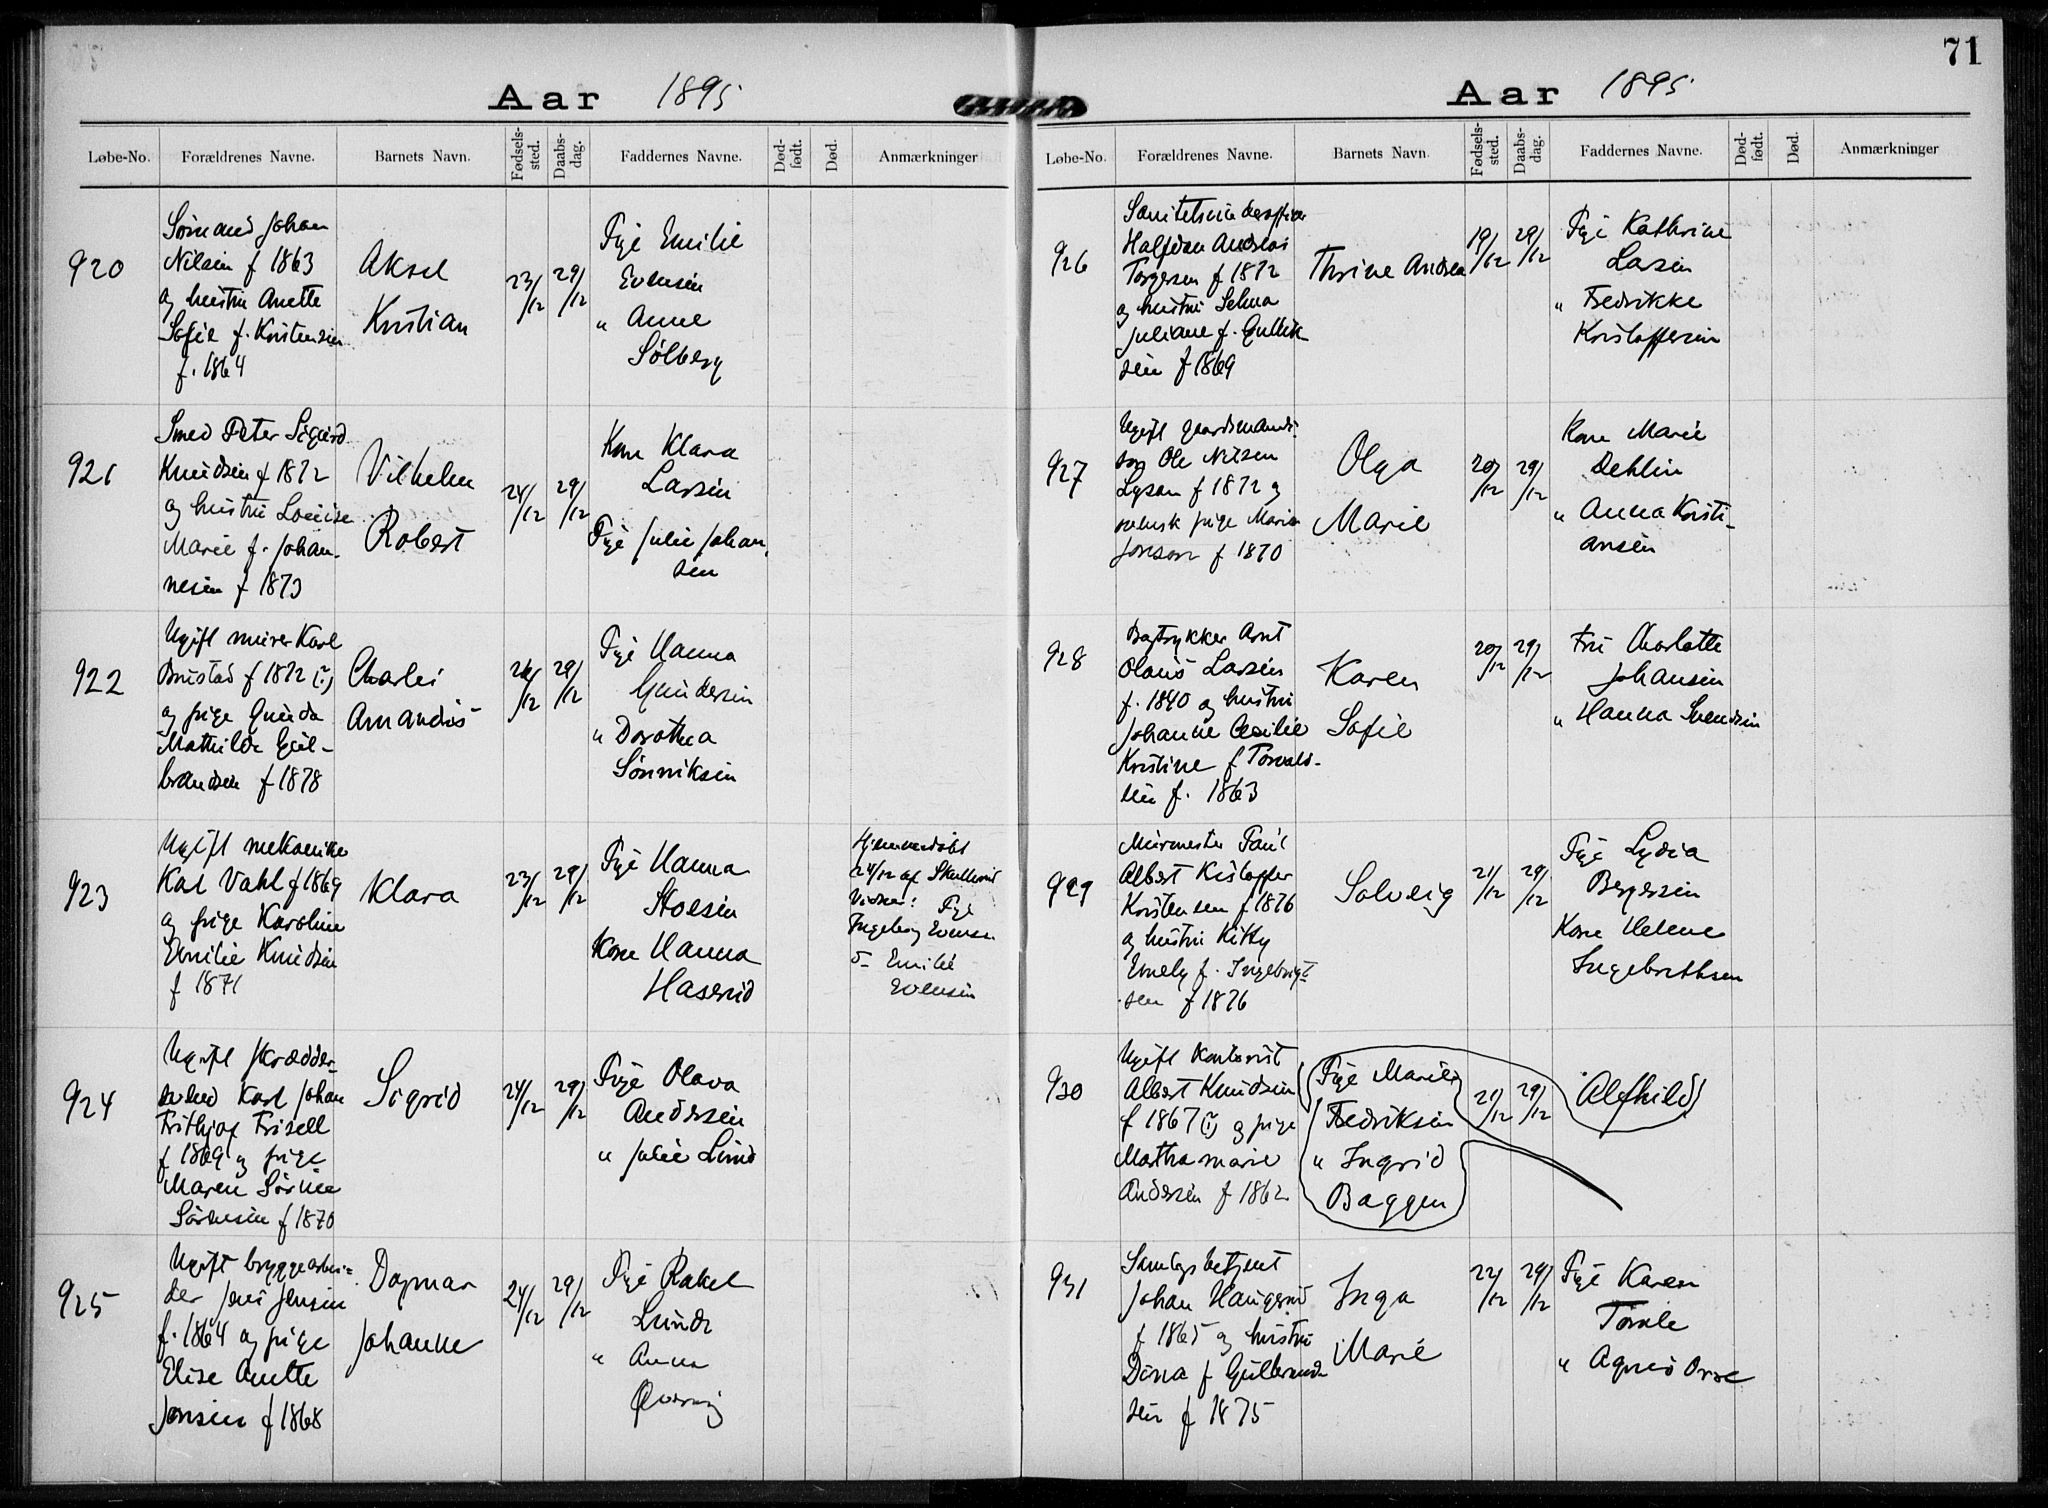 71
Aar 1895
Løbe-No. Forældrenes Navne. Barnets Navn. Fødsels-sted. Daabs-dag. Faddernes Navne. Død-født. Død. Anmærkninger
920
Sømand Johan
Nilsen f 1863
og hustru Anette
Sofie f. Kristensen
f. 1864
Aksel
Kristian
23/12
29/12
Pige Emilie
Evensen
" Anne
Solberg
921
Smed Peter Sigurd
Knudsen f 1872
og hustru Louise
Marie f. Johan-
nesen f 1873
Vilhelm
Robert
24/12
29/12
Kone Klara
Larsen
Pige Julie Johan-
sen
922
Ugift murer Karl
Brustad f 1872 (?)
og pige Gunda
Mathilde Gul-
brandsen f 1878
Charles
Amandus
24/12
29/12
Pige Hanna
Gundersen
" Dorothea
Sønniksen
923
Ugift mekaniker
Karl Vahl f 1869
og pige Karoline
Emilie Knudsen
f 1871
Klara
23/12
29/12
Pige Hanna
Kone Hanna
Hjemmedøbt
24/12 af
Vidner: Pige
Ingeborg Evensen
Emilie
Evensen
924
Ugift skrædder-
svend Karl Johan
Frithjof Frisell
f 1869 og pige
Maren Sørine
Sørensen f 1870
Sigrid
24/12
29/12
Pige Olava
Andersen
" Julie Lund
925
Ugift bryggearbei-
der Jens Jensen
f. 1864 og pige
Elise Anette
Jensen f 1868
Dagmar
Johanne
24/12
29/12
Pige Rakel
Lunde
" Anna
Aar 1895
Løbe-No. Forældrenes Navne. Barnets Navn. Fødsels-sted. Daabs-dag. Faddernes Navne. Død-født. Død. Anmærkninger
926
Sanitetsunderofficer
Halfdan Andreas
Torgersen f 1872
og hustru Selma
Juliane f. Gullik-
sen f 1869
Thrine Andrea
19/12
29/12
Pige Kathrine
Larsen
" Fredrikke
Kristoffersen
927
Ugift gaardmands-
søn Ole Nilsen
f 1872 og
svensk pige Maria
Jonsson f 1870
Olga
Marie
20/12
29/12
Kone Marie
Dehlin
" Anna Kristi-
ansen
928
Bogtrykker Arnt
Olaus Larsen
f. 1840 og hustru
Johanne Cecilie
Kristine f Torvald-
sen f. 1863
Karen
Sofie
20/12
29/12
Fru Charlotte
Johansen
" Hanna Svendsen
929
Murmester Paul
Albert Kristoffer
Kristensen f 1876
og hustru Kitty
Emely f. Ingebrigt-
sen f 1876
Solveig
21/12
29/12
Pige Lydia
Bergersen
Kone Helene
Ingebrethsen
930
Ugift Kontorist
Albert Knudsen
f 1867 (?) og pige
Martha Marie
Andersen f 1862
Pige Marie
Fredriksen
" Ingrid
Baggen
21/12
29/12
Alfhild
931
Samlagsbetjent
Johan Haugerud
f 1865 og hustru
Dina f Gulbrand-
sen f 1875
Inga
Marie
22/12
29/12
Pige Karen
" Agnes